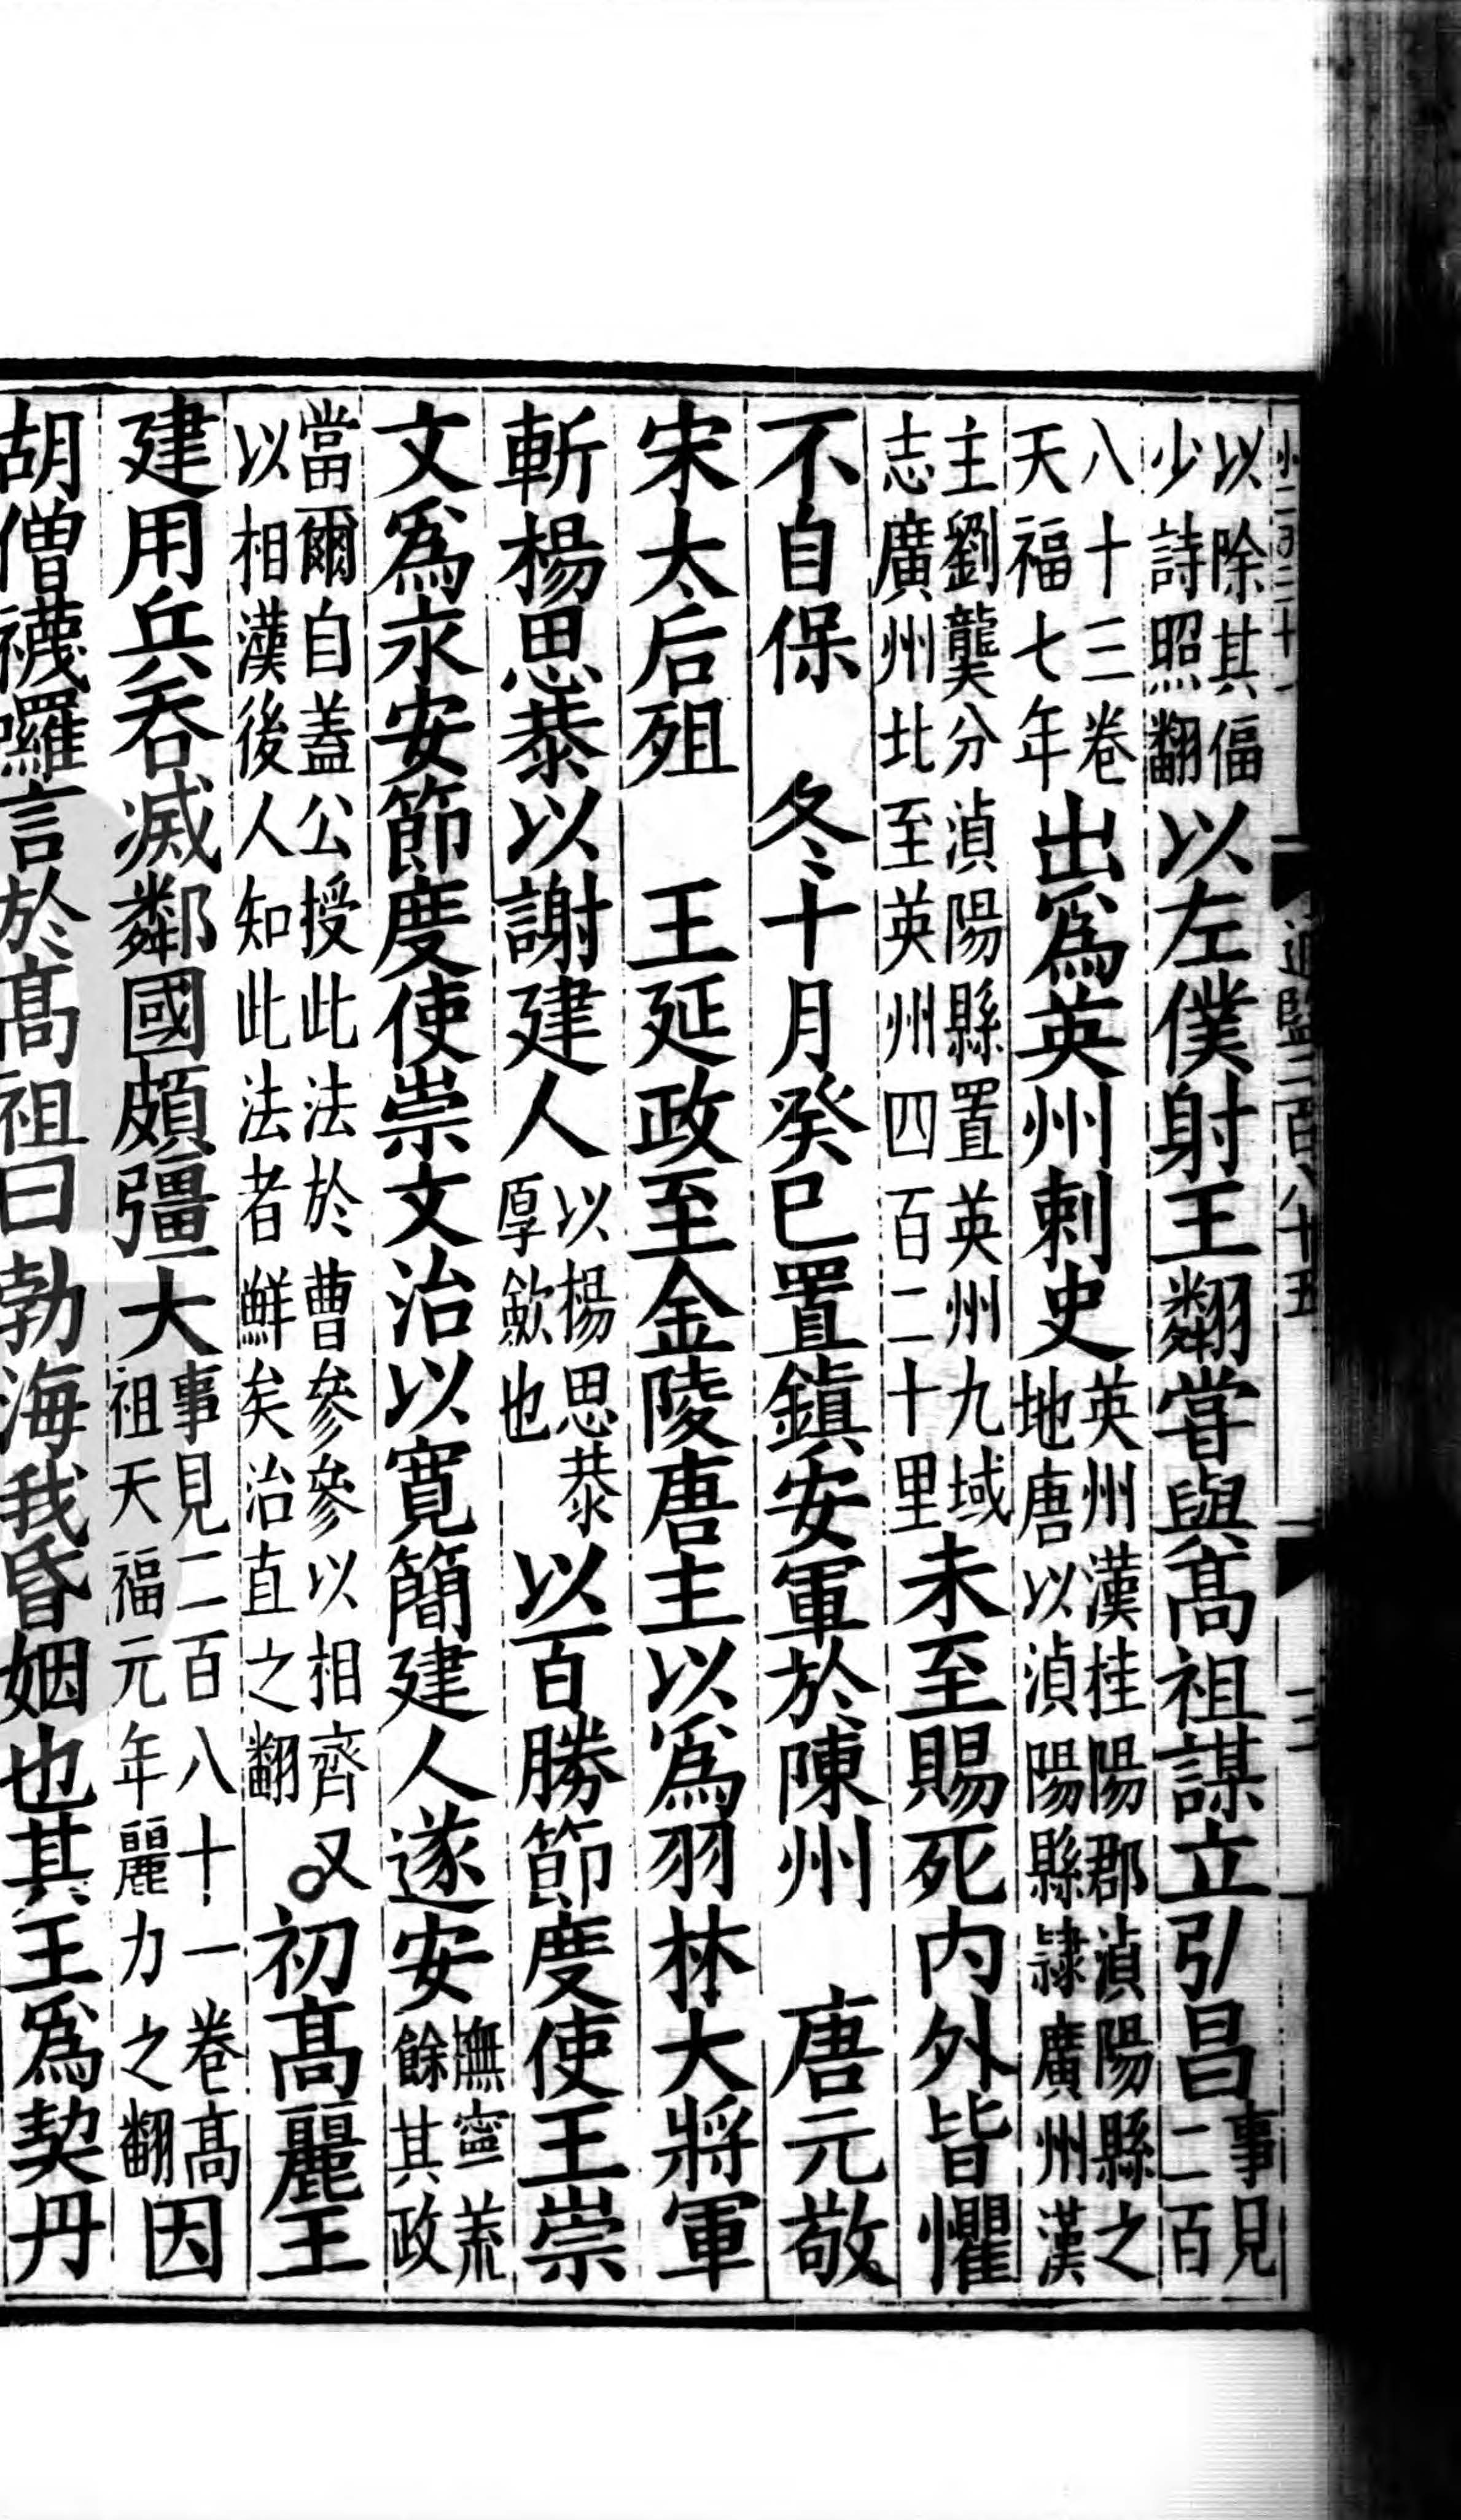 以除其偪少詩照翻以左僕射王翷嘗與高祖謀立弘昌事見二百
八十三卷天福七年出爲英州刺史英州漢桂陽郡湞陽縣之地唐以湞陽縣隷廣州漢
主劉龑分湞陽縣置英州九域志廣州北至英州四百二十里未至賜死內外皆懼
不自保 冬十月癸巳置鎮安軍於陳州 唐元敬
宋太后殂 王延政至金陵唐主以爲羽林大將軍
斬楊思恭以謝建人以楊思恭厚歛也以百勝節度使王崇
文爲永安節度使崇文治以寬簡建人遂安撫寧荒餘其政
當爾自蓋公授此法於曹參參以相齊又以相漢後人知此法者鮮矣治直之翻○初高麗王
建用兵吞滅鄰國頗彊大事見二百八十一卷高祖天福元年麗力之翻因
胡僧襪囉言於高祖曰勃海我昏姻也其王爲契丹
通鑑二百八十五
二